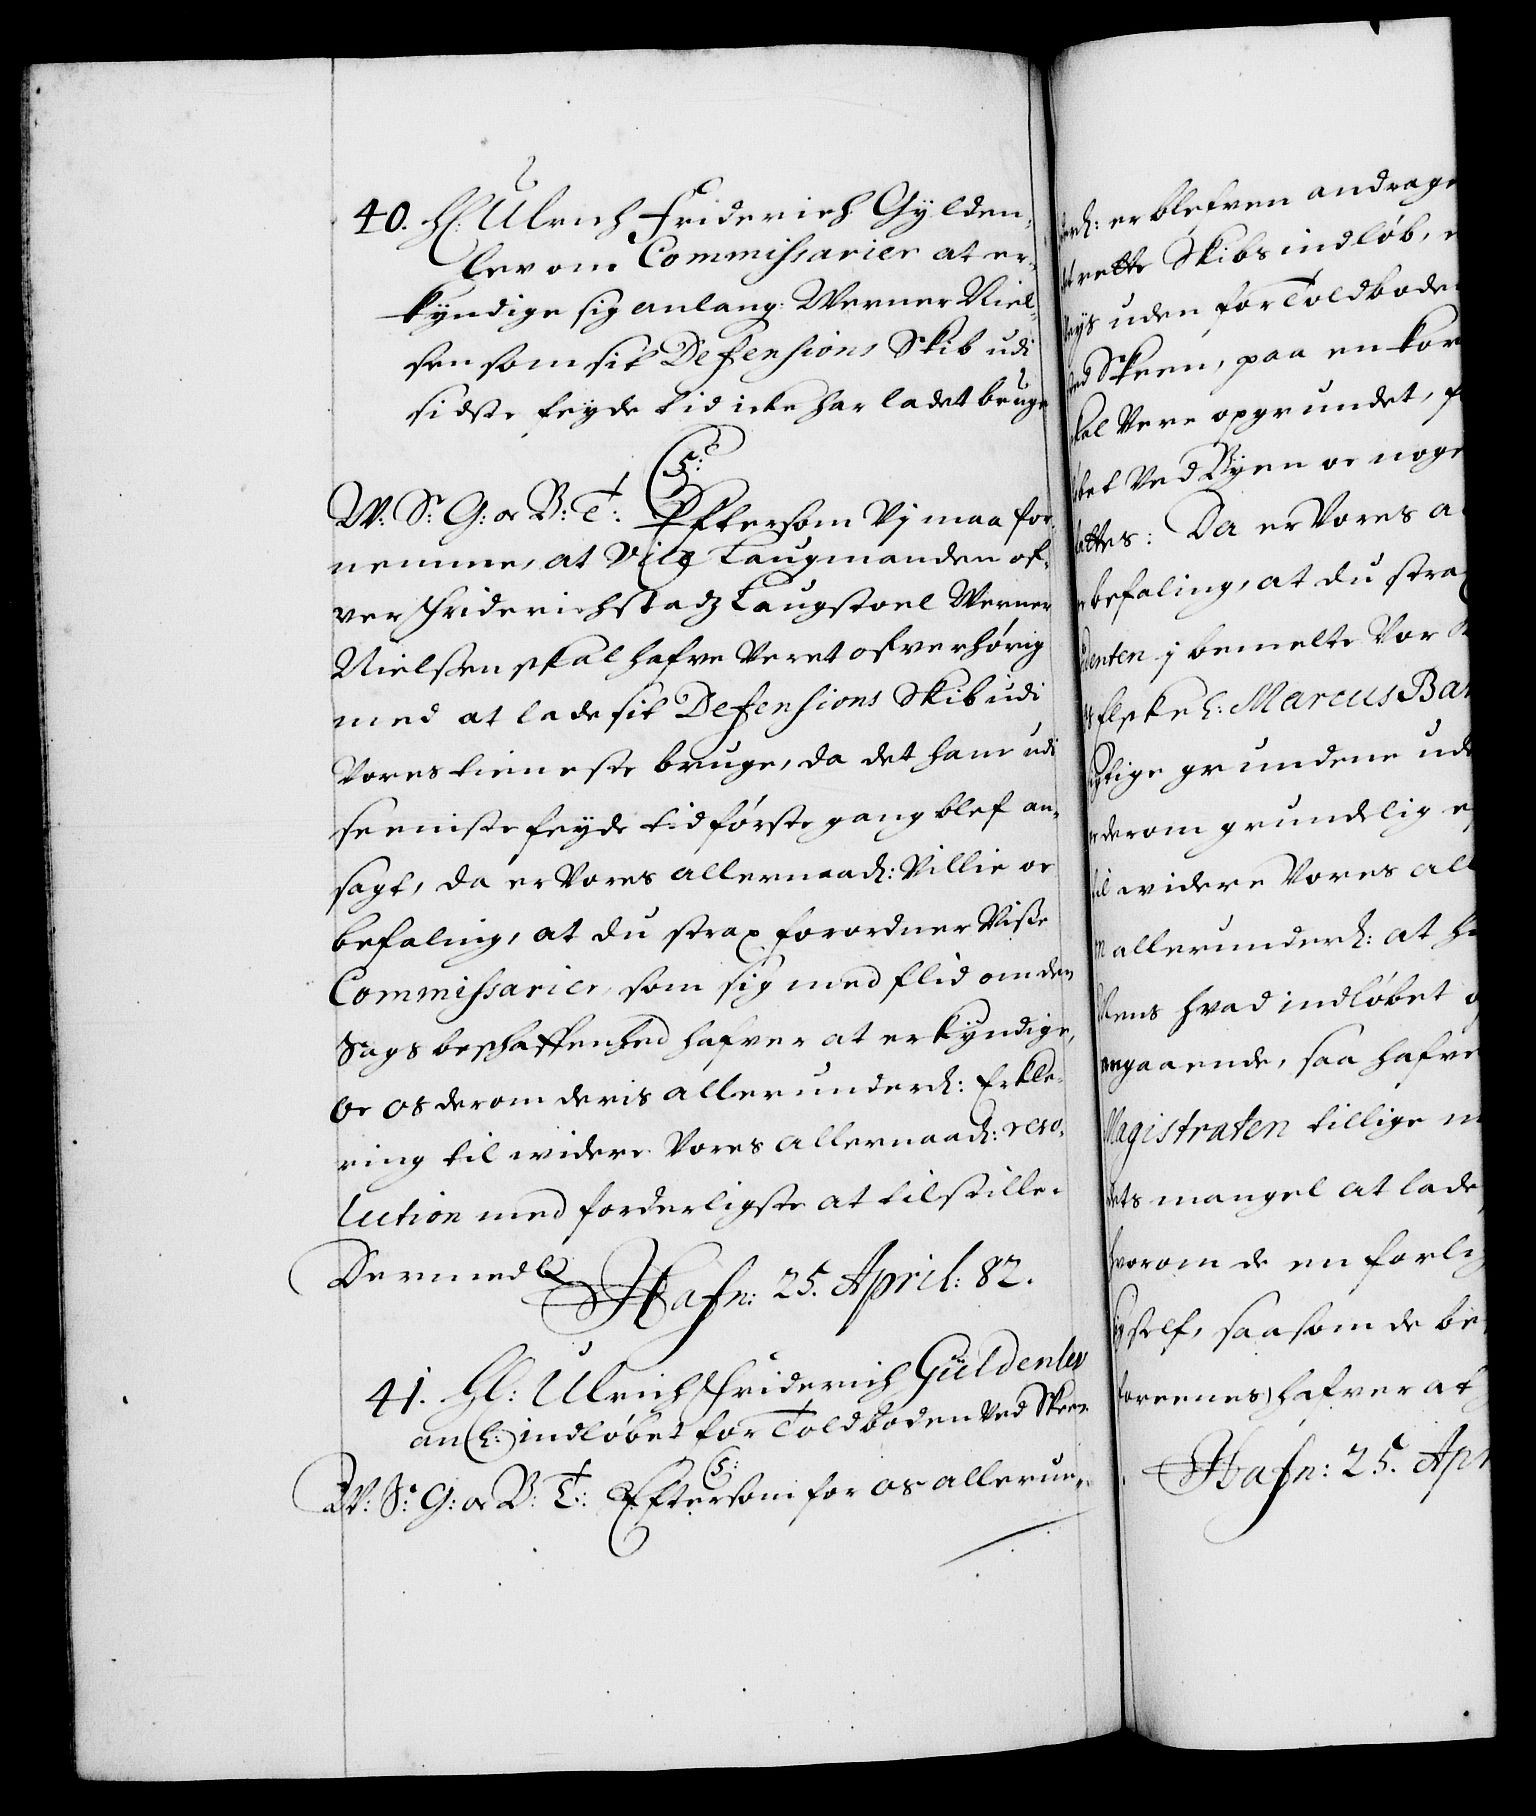 40. H: Ulrich Friderich Gylden-
lev om Commissarier at er-
kyndige sig anlang: Werner Niel-
sen som sit Defensions Skib udi
sidste feyde tid icke har ladet bruge
C5:
W: S: G: oc B: T: Eftersom Vj maa for-
nemme, at Laugmanden of-
ver Friderichstadz Laugstoel Werner
Nielssen skal hafve Veret ofverhørig
med at lade sit Defensions Skib udi
Vores tieneste bruge, da det ham udi
seeniste feyde tid første gang blef an-
sagt, da er Vores allernaad: Villie oc
befaling, at du strax forordner Visse
Commissarier, som sig med flid om den
Sags beschaffenhed hafver at erkyndige,
Oc os derom deris allerunderd: Erkle-
ring til widere Vores allernaad: reso-
lution med forderligste at tilstille.
Dermed Hafn: 25. April: 82.
41. Hl: Ulrich Friderich Güldenlev
an(l:) indløbet for Toldboden Ved Skeen
C5:
W: S: G: oc B: T: Eftersom for os allerun-
derd: er blefven andrage
rette Skibs indløb,
uden for Toldboden
ved Skeen, paa en kor
skal Vere opgrundet, f
Ved Byen oc noge
Da er Vores a
befaling, at du stra
denten j bemelte Vor
Marcus Bar
grundene ude
derom grundelig
til widere Vores all
allerunderd: at h
hvad indløbet o
angaaende, saa hafve
Magistraten tillige m
mangel at lade
hvorom de en forlig
self, saasom de be
foreenes) hafver at
Hafn: 25. Apr